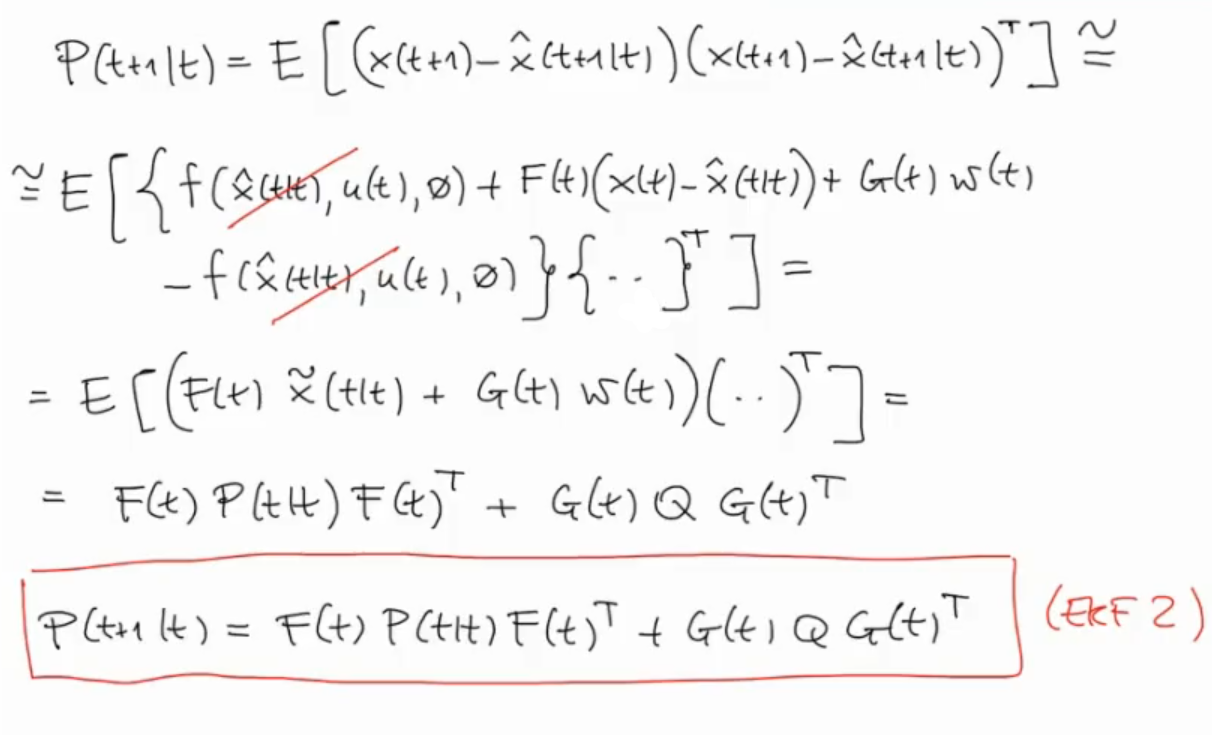 P(t+1|t) = E[(x(t+1) - x̂(t+1|t))(x(t+1) - x̂(t+1|t))ᵀ] ≅
≅ E[{f(x̂(t|t), u(t), ∅) + F(t)(x(t) - x̂(t|t)) + G(t) w(t)
- f(x̂(t|t), u(t), ∅)}{..}ᵀ] =
= E[(F(t) x̃(t|t) + G(t) w(t))(..)ᵀ] =
= F(t) P(t|t) F(t)ᵀ + G(t) Q G(t)ᵀ
P(t+1|t) = F(t) P(t|t) F(t)ᵀ + G(t) Q G(t)ᵀ (EKF 2)